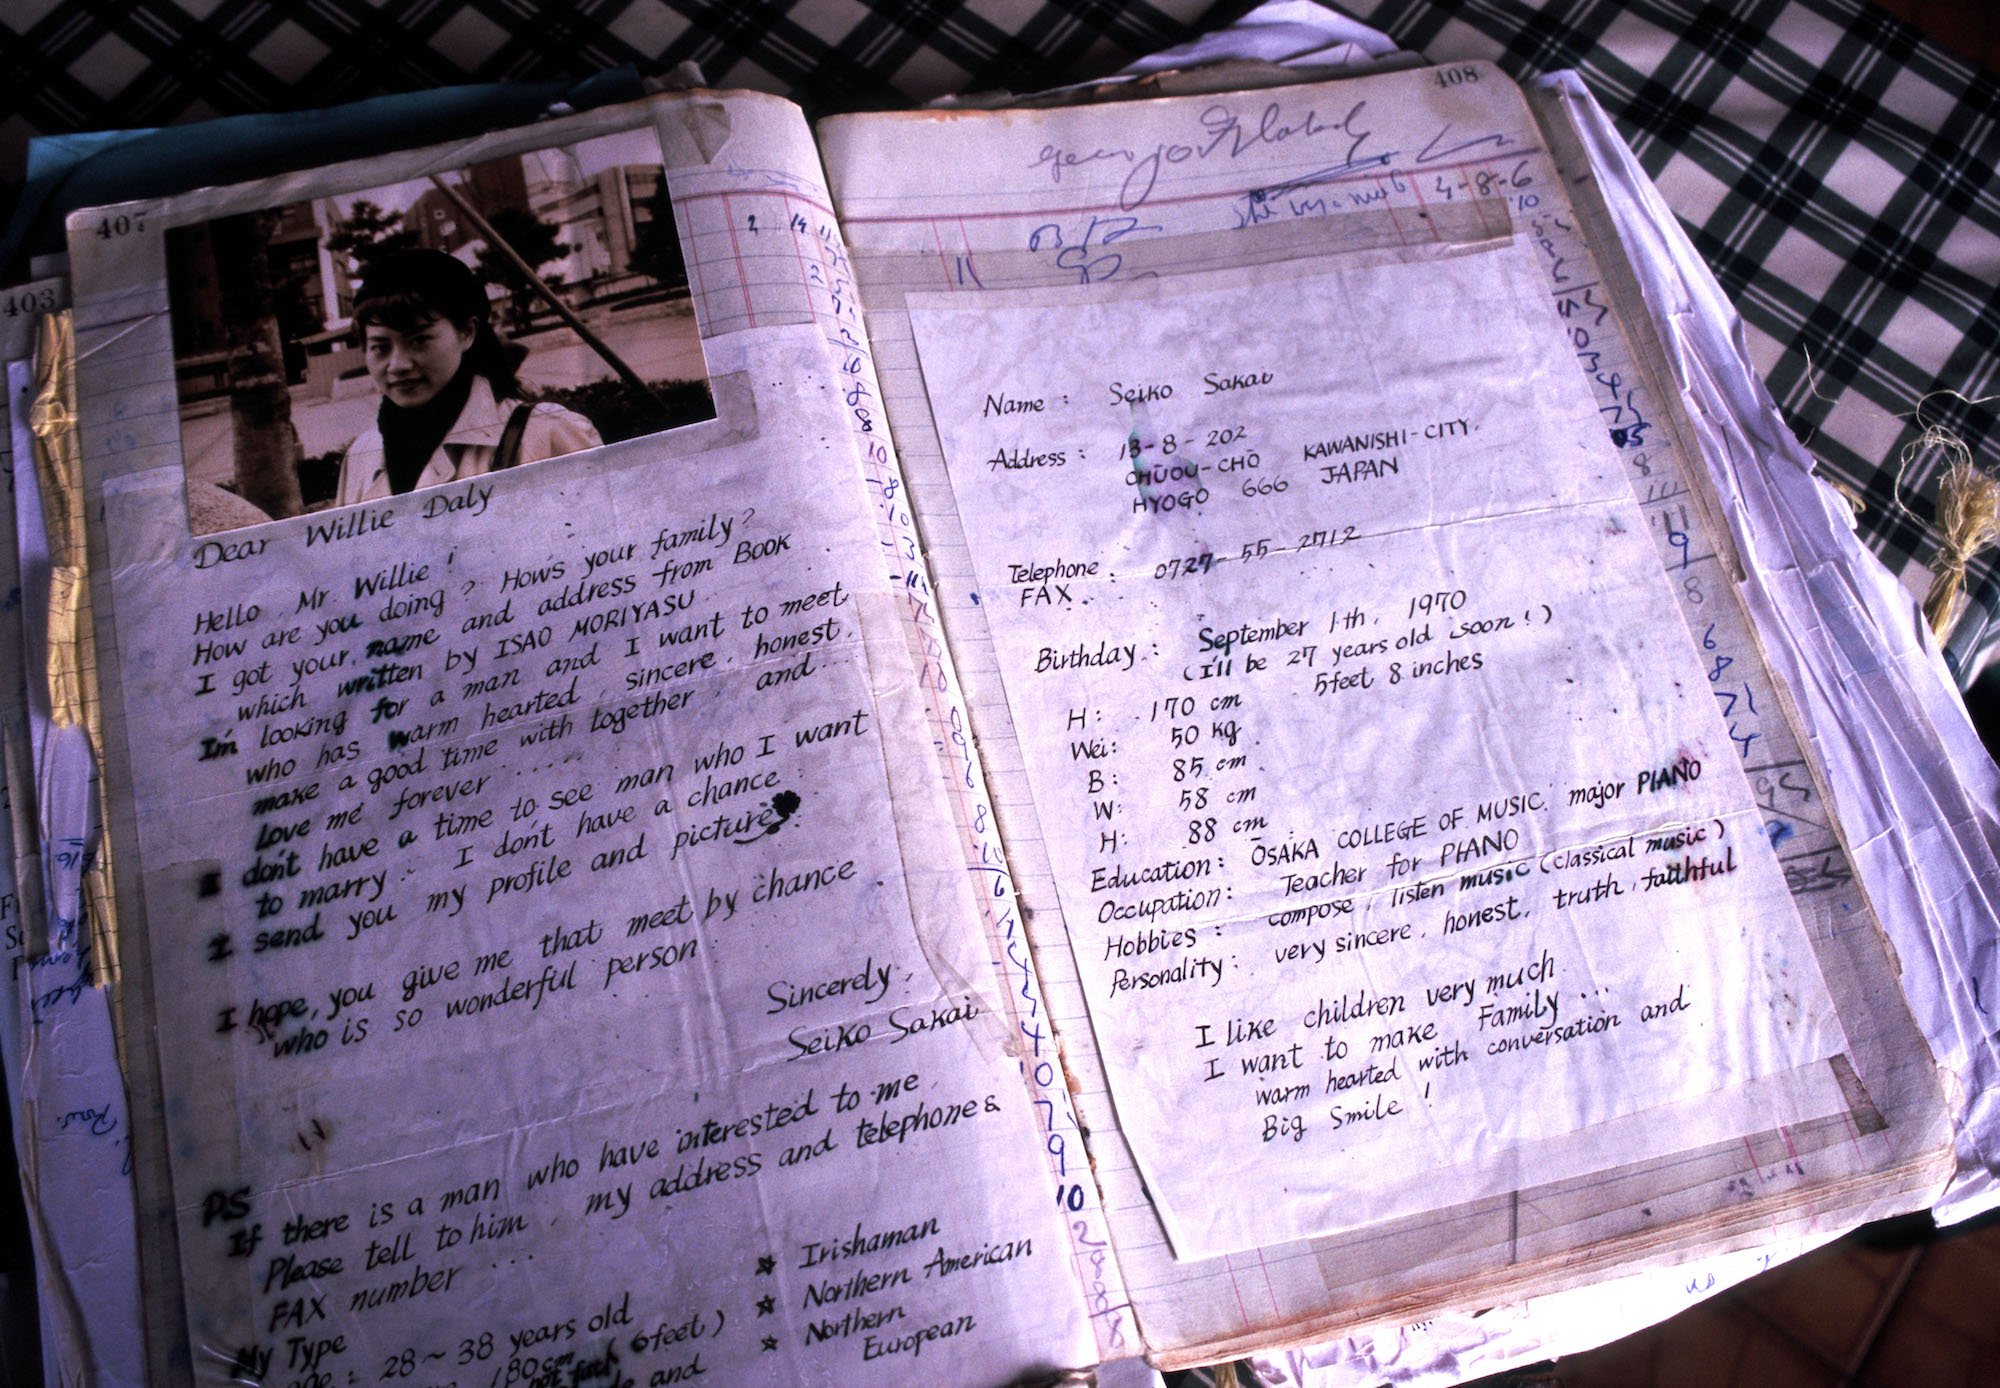 407
403
Dear Willie Daly
Hello. Mr. Willie!
How are you doing? How's your family?
I got your name and address from Book
which written by ISAO MORIYASU.
I'm looking for a man and I want to meet
who has warm hearted, sincere, honest,
make a good time with together, and....
Love me forever .....
I don't have a time to see man who I want
to marry. I don't have a chance.
I send you my profile and picture.
I hope, you give me that meet by chance
who is so wonderful person.
Sincerely,
Seiko Sakai
PS
If there is a man who have interested to me,
Please tell to him, my address and telephone &
FAX number ...
My Type
age: 28~38 years old
180cm 6feet)
not fat
and
★ Irishaman
★ Northern American
★ Northern
European
408
4-8-6
Name: Seiko Sakai
Address: 13-8-202
CHŪOU-CHŌ KAWANISHI-CITY.
HYOGO 666 JAPAN
Telephone: 0727-55-2712
FAX.
Birthday: September 1th, 1970
(I'll be 27 years old soon!)
H: 170 cm 5feet 8 inches
Wei: 50 kg
B: 85 cm
W: 58 cm
H: 88 cm
Education: ŌSAKA COLLEGE OF MUSIC. major PIANO
Occupation: Teacher for PIANO
Hobbies: compose, listen music (classical music)
Personality: very sincere, honest, truth, faithful
I like children very much
I want to make Family ...
warm hearted with conversation and
Big Smile!